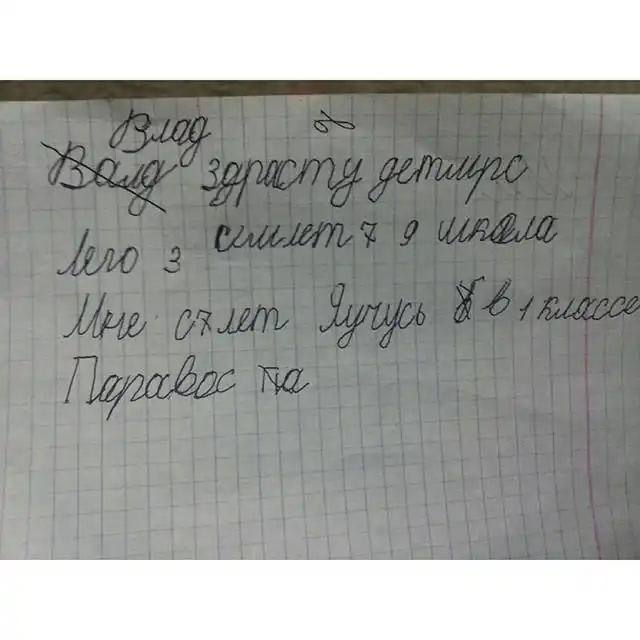 Влад
Валд здрасту детмирс
Лего 3 симлет 7 9 школа
Мне с7лет Яучусь в 1 классе
Паравос па